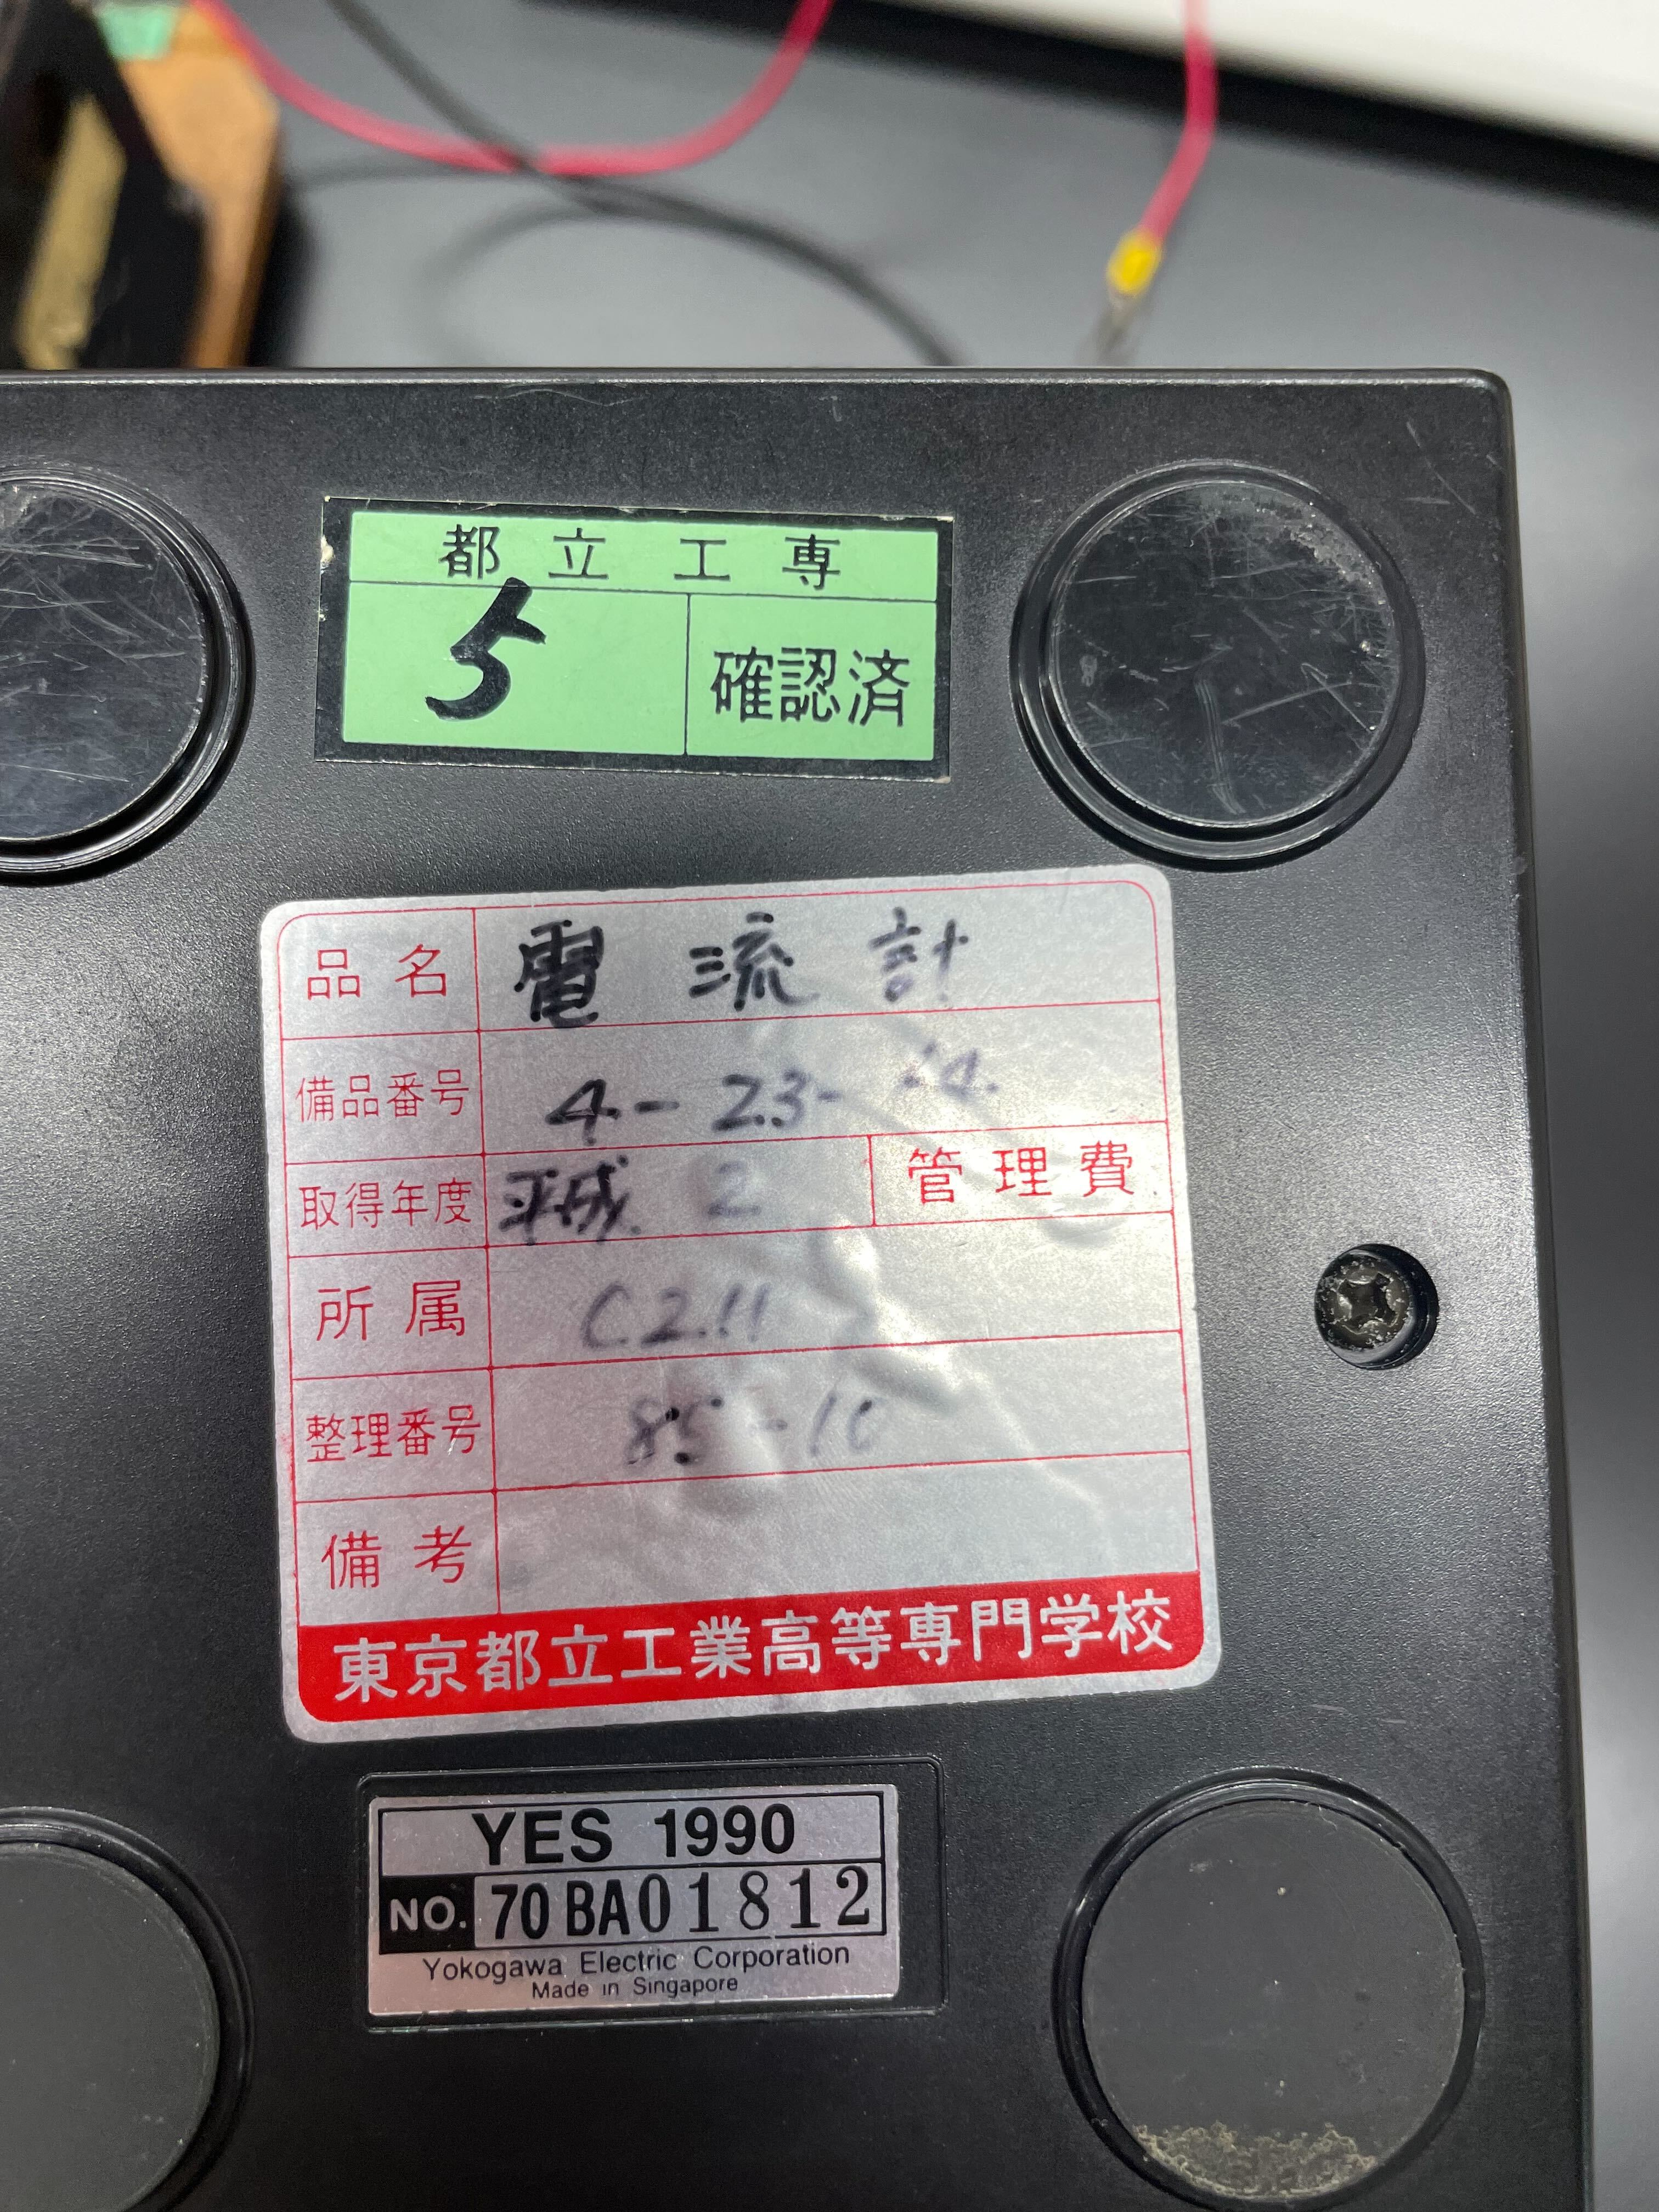 都立工専
5 確認済
品名 電流計
備品番号 4-23-14
取得年度 平成 2 管理費
所属 C211
整理番号 85-10
備考
東京都立工業高等専門学校
YES 1990
NO. 70BA01812
Yokogawa Electric Corporation
Made in Singapore